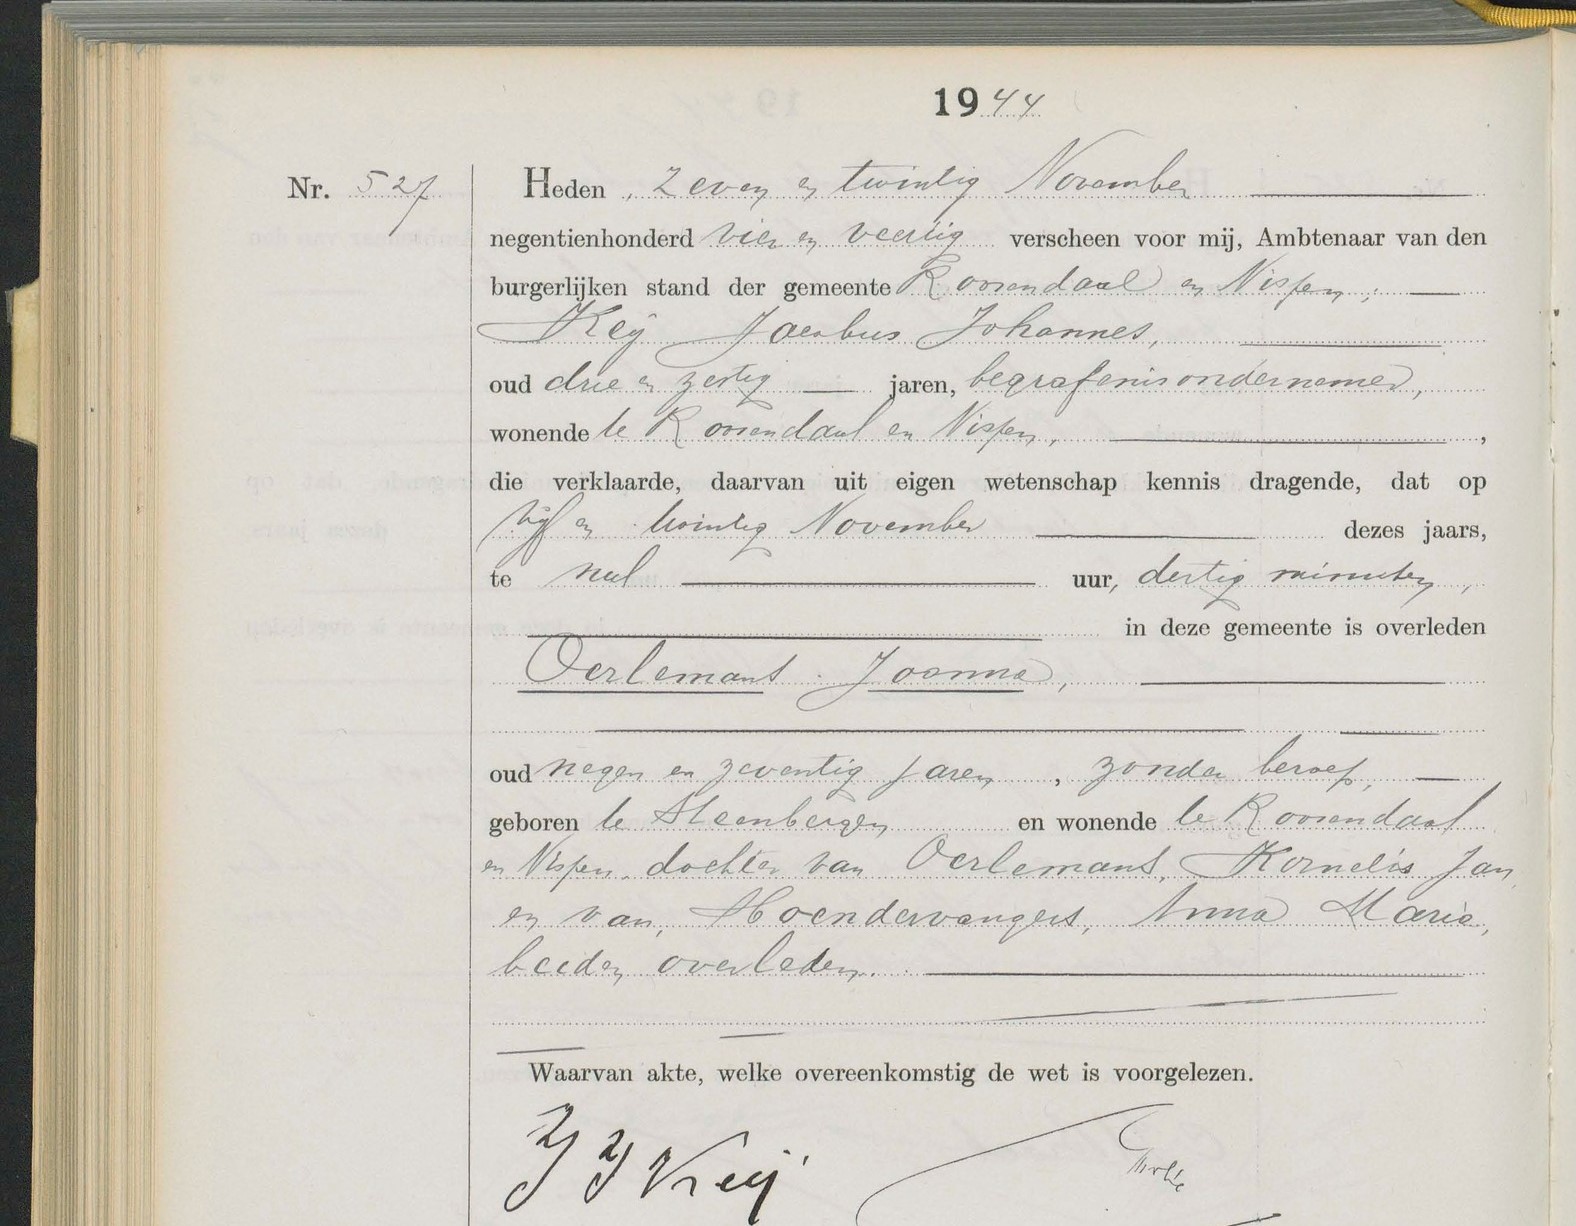 1944
Nr. 527
Heden, zeven en twintig November
negentienhonderd vier en veertig verscheen voor mij, Ambtenaar van den
burgerlijken stand der gemeente Roosendaal en Nispen;
Keij Jacobus Johannes,
oud drie en zestig jaren, begrafenisondernemer,
wonende te Roosendaal en Nispen,
die verklaarde, daarvan uit eigen wetenschap kennis dragende, dat op
vijf en twintig November dezes jaars,
te nul uur, dertig minuten,
in deze gemeente is overleden
Oerlemans Joanna,
oud negen en zeventig jaren, zonder beroep,
geboren te Steenbergen en wonende te Roosendaal
en Nispen, dochter van Oerlemans, Kornelis Jan
en van, Hoendervangers, Anna Maria,
beiden overleden.
Waarvan akte, welke overeenkomstig de wet is voorgelezen.
JJ Keij